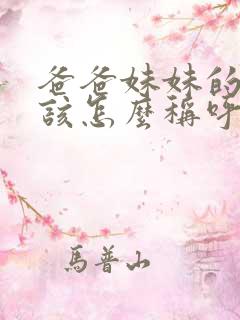 爸爸妹妹的
該怎麼稱呼
馬普山